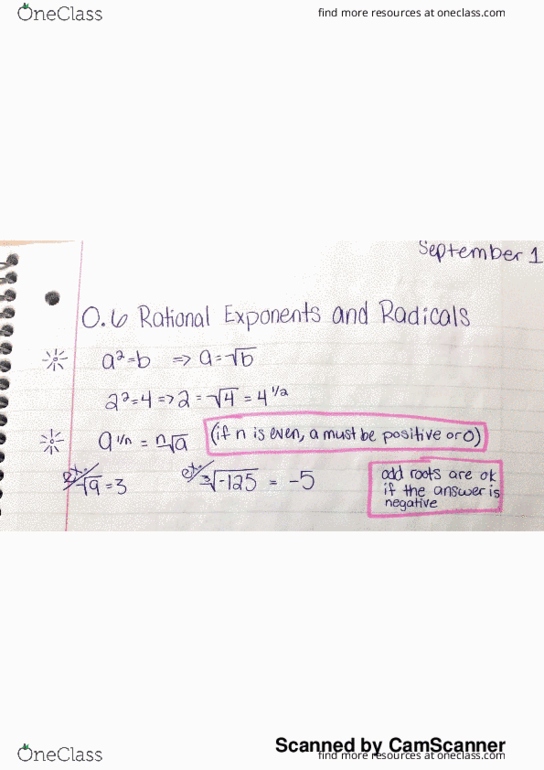 OneClass
find more resources at oneclass.com
September 1
0.6 Rational Exponents and Radicals
a²=b ⇒ a=√b
2²=4 => 2 = √4 = 4^1/2
a^1/n = ⁿ√a (if n is even, a must be positive or 0)
ex/ √9 = 3 ex/ ³√-125 = -5
odd roots are ok
if the answer is
negative
Scanned by CamScanner
OneClass
find more resources at oneclass.com